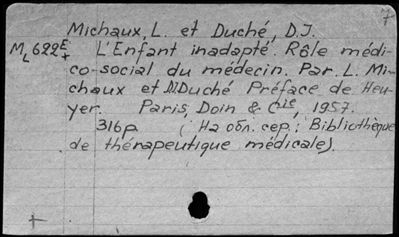 7
Michaux, L. et Duché, D.J.
M 622E L'Enfant inadapté. Rôle médi-
L +
co-social du médecin. Par. L. Mi-
chaux et D.Duché Préface de Heu-
yer. Paris, Doin & Cie, 1957.
316p (На обл. сер.: Bibliothèque
de thérapeutique médicale).
+